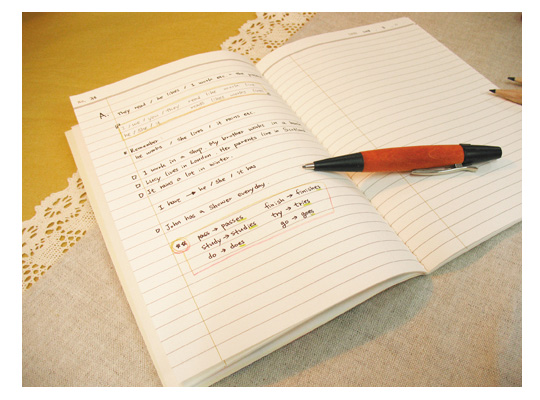 A. They read / he likes / I work etc = the
I / we / you / they read like work live
He / She / it
* Remember
he works / She lives / it rains etc
I work in a shop. My brother works in a
Lucy lives in London. Her parents live in Scotland
It rains a lot in winter
I have → he / she / it has
John has a shower everyday
pass → passes finish → finishes
study → studies try → tries
do → does go → goes